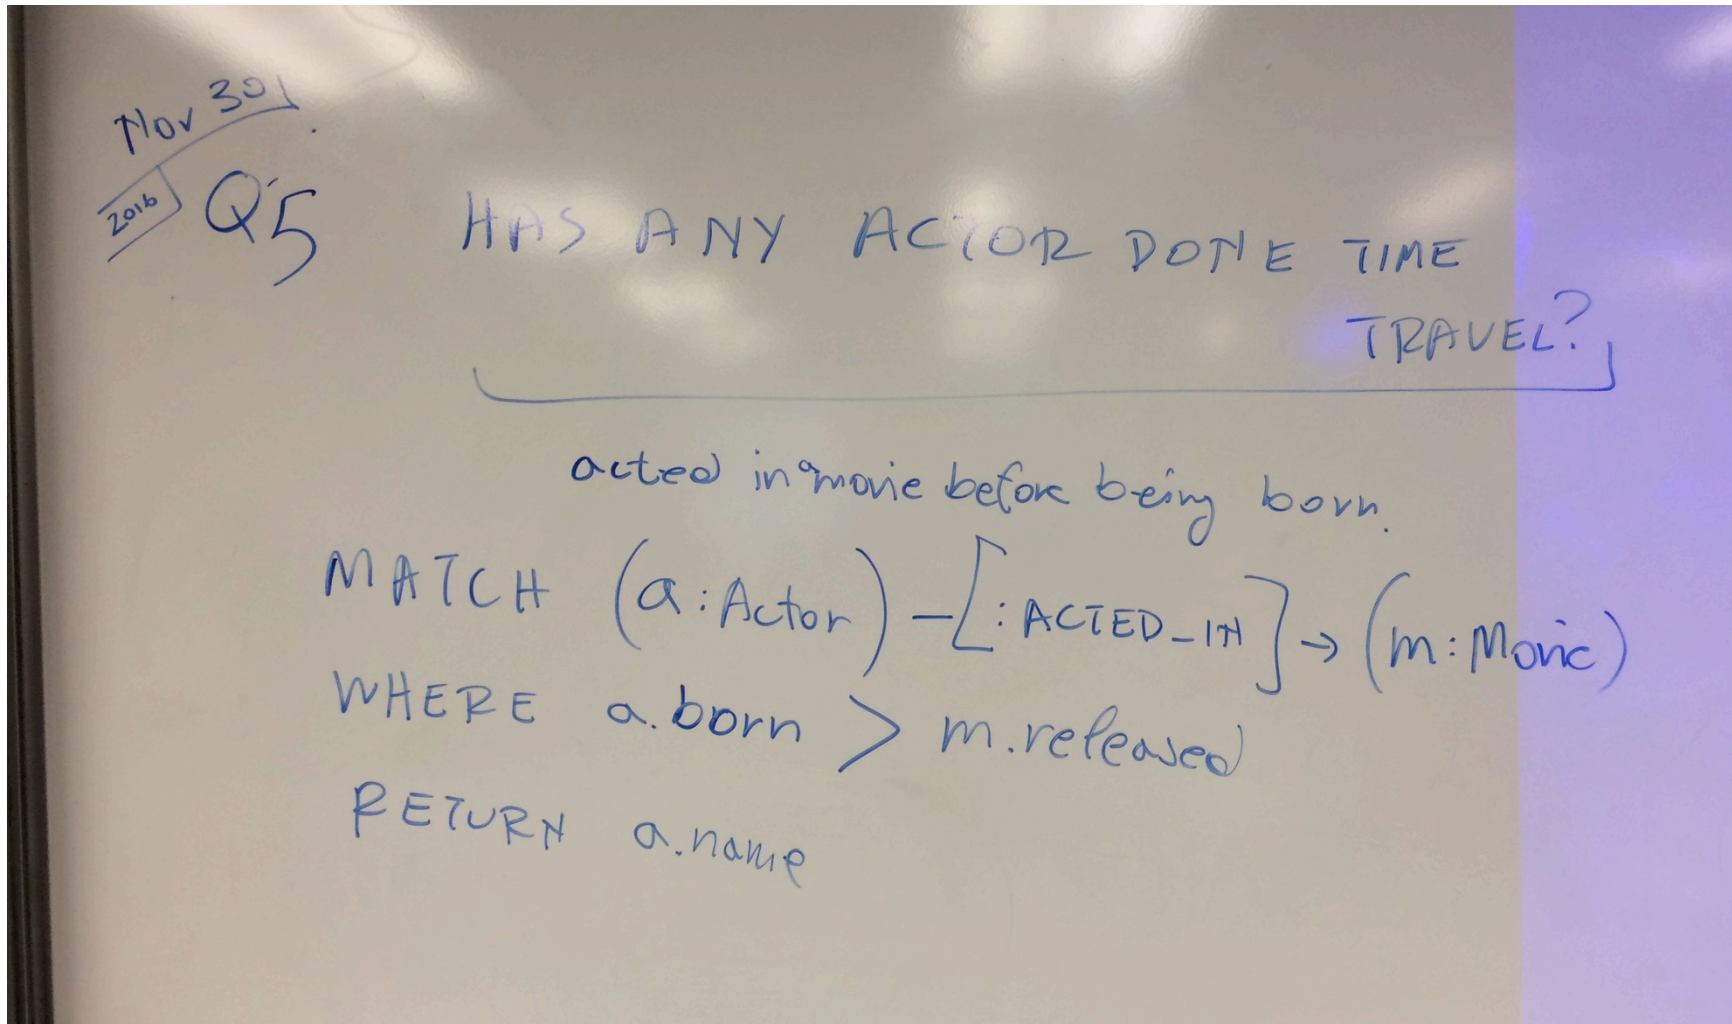 Nov 30
2016
Q5 HAS ANY ACTOR DONE TIME
TRAVEL?
acted in a movie before being born.
MATCH (a:Actor)-[:ACTED_IN]→(m:Movie)
WHERE a.born > m.released
RETURN a.name